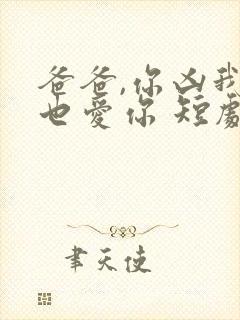 爸爸,你凶我
也爱你 短剧
聿天使